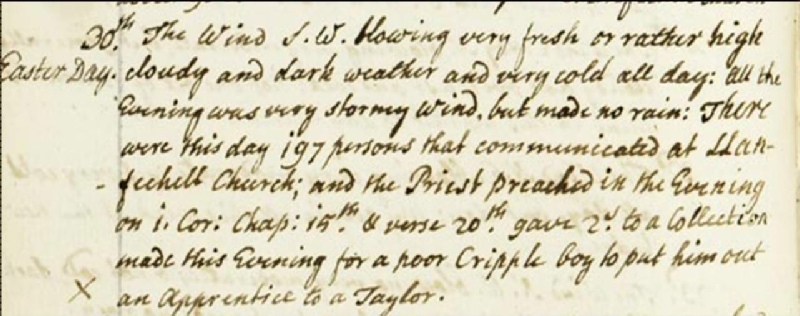 30.th The Wind S.W. blowing very fresh or rather high
Easter Day. cloudy and dark weather and very cold all day: all the
Evening was very stormey Wind, but made no rain: There
were this day 197 persons that communicated at Llan-
fechell Church; and the Priest preached in the Evening
on 1. Cor: Chap: 15th. & verse 20th. gave 2d. to a Collection
made this Evening for a poor Cripple boy to put him out
X an Apprentice to a Taylor.